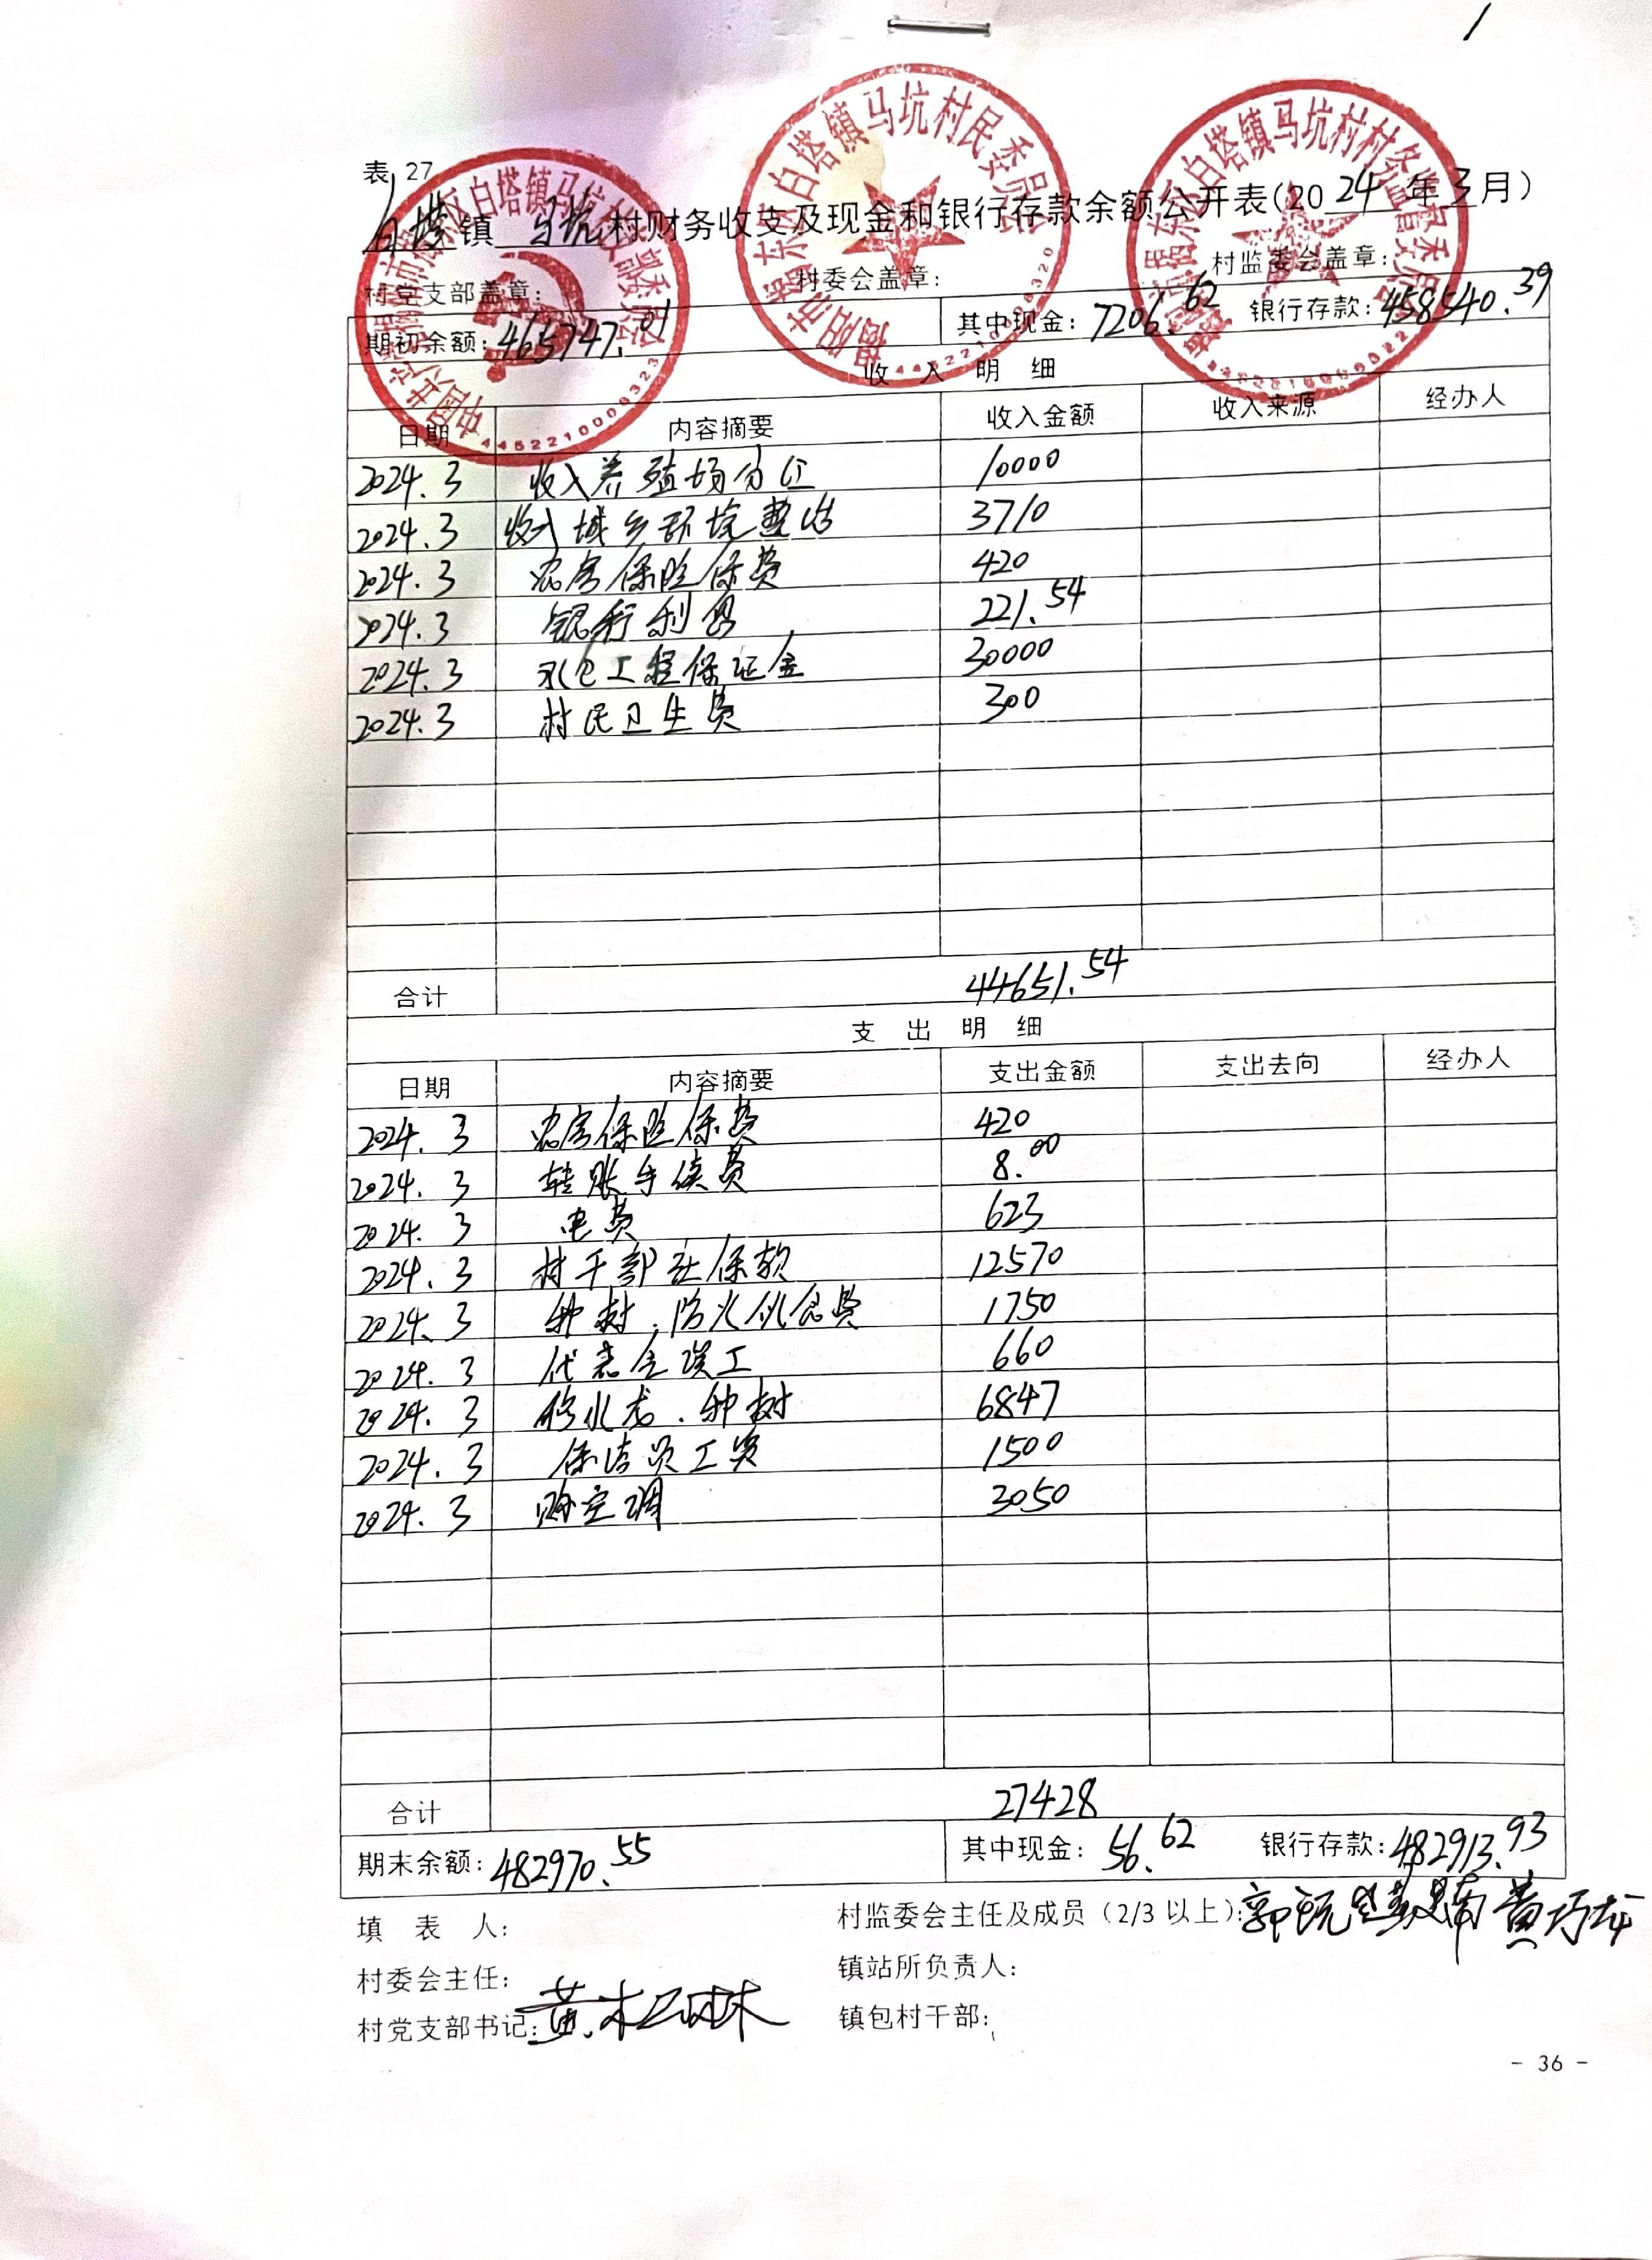 1
表 27
白塔镇 马坑村财务收支及现金和银行存款余额公开表(2024年3月)
村党支部盖章: 村委会盖章: 村监委会盖章:
白塔镇马坑村
4452210000323
揭阳市揭东区白塔镇马坑村民委员会
揭阳市揭东区白塔镇马坑村村务监督委员会
期初余额: 465747.01 其中现金: 7206.62 银行存款: 458540.39
收 入 明 细
日期 内容摘要 收入金额 收入来源 经办人
2024.3 收入养殖场分红 10000
2024.3 收入城乡环境整治 3710
2024.3 农房保险保费 420
2024.3 银行利息 221.54
2024.3 水电工程保证金 30000
2024.3 村民卫生费 300
合计 44651.54
支 出 明 细
日期 内容摘要 支出金额 支出去向 经办人
2024.3 农房保险保费 420
2024.3 转账手续费 8.00
2024.3 电费 623
2024.3 村干部社保款 12570
2024.3 种树.防火伙食费 1750
2024.3 代表会误工 660
2024.3 修水龙.种树 6847
2024.3 保洁员工资 1500
2024.3 购空调 3050
合计 27428
期末余额: 482970.55 其中现金: 56.62 银行存款: 482913.93
填 表 人: 村监委会主任及成员(2/3以上): 郭 黄巧
村委会主任: 镇站所负责人:
村党支部书记: 黄 镇包村干部:
- 36 -